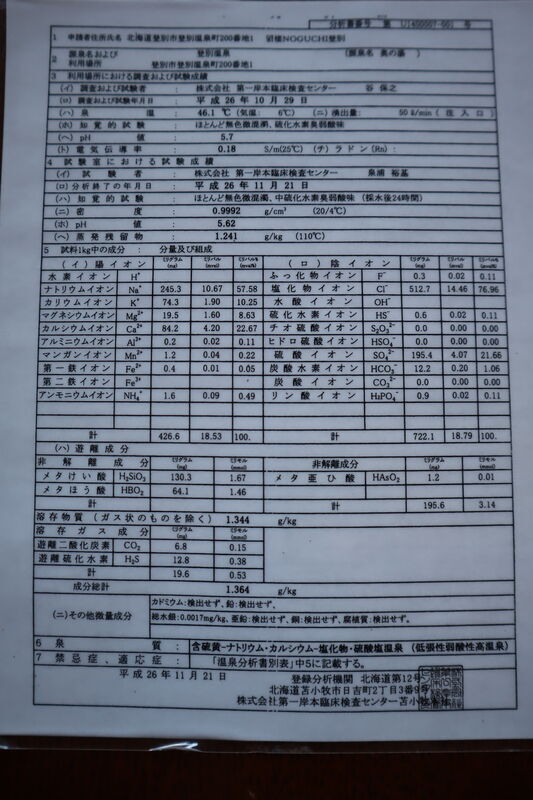 分析書番号 第 号
1 申請者住所氏名 北海道登別市登別温泉町200番地1 NOGUCHI登別
2 源泉名および 登別温泉 (源泉名 奥の湯 )
利用場所 登別市登別温泉町200番地1
3 利用場所における調査および試験成績
(イ) 調査および試験者 : 株式会社 第一岸本臨床検査センター 谷 保之
(ロ) 調査および試験年月日 : 平成 26年 10月 29日
(ハ) 泉 温 : 46.1 ℃ (気温: 6℃) (ニ) 湧出量 : 50 ℓ/min ( 注 入 口 )
(ホ) 知覚的試験 : ほとんど無色微混濁、硫化水素臭弱酸味
(ヘ) pH値 : 5.7
(ト) 電気伝導率 : 0.18 S/m(25℃) (チ) ラドン(Rn) :
4 試験室における試験成績
(イ) 試験者 : 株式会社 第一岸本臨床検査センター 泉浦 裕基
(ロ) 分析終了の年月日 : 平成 26年 11月 21日
(ハ) 知覚的試験 : ほとんど無色微混濁、中硫化水素臭弱酸味 (採水後24時間)
(ニ) 密度 : 0.9992 g/cm³ (20/4℃)
(ホ) pH値 : 5.62
(ヘ) 蒸発残留物 : 1.241 g/kg (110℃)
5 試料1kg中の成分 : 分量及び組成
(イ) 陽イオン ミリグラム(mg) ミリバル(mval) ミリバル%(mval%) (ロ) 陰イオン ミリグラム(mg) ミリバル(mval) ミリバル%(mval%)
水素イオン H⁺ ふっ化物イオン F⁻ 0.3 0.02 0.11
ナトリウムイオン Na⁺ 245.3 10.67 57.58 塩化物イオン Cl⁻ 512.7 14.46 76.96
カリウムイオン K⁺ 74.3 1.90 10.25 水酸イオン OH⁻
マグネシウムイオン Mg²⁺ 19.5 1.60 8.63 硫化水素イオン HS⁻ 0.6 0.02 0.11
カルシウムイオン Ca²⁺ 84.2 4.20 22.67 チオ硫酸イオン S₂O₃²⁻ 0.0 0.00 0.00
アルミニウムイオン Al³⁺ 0.2 0.02 0.11 ヒドロ硫酸イオン HSO₄⁻ 0.0 0.00 0.00
マンガンイオン Mn²⁺ 1.2 0.04 0.22 硫酸イオン SO₄²⁻ 195.4 4.07 21.66
第一鉄イオン Fe²⁺ 0.4 0.01 0.05 炭酸水素イオン HCO₃⁻ 12.2 0.20 1.06
第二鉄イオン Fe³⁺ 炭酸イオン CO₃²⁻ 0.0 0.00 0.00
アンモニウムイオン NH₄⁺ 1.6 0.09 0.49 リン酸イオン H₂PO₄⁻ 0.9 0.02 0.11
計 426.6 18.53 100. 計 722.1 18.79 100.
(ハ) 遊離成分
非解離成分 ミリグラム(mg) ミリモル(mmol) 非解離成分 ミリグラム(mg) ミリモル(mmol)
メタけい酸 H₂SiO₃ 130.3 1.67 メタ亜ひ酸 HAsO₂ 1.2 0.01
メタほう酸 HBO₂ 64.1 1.46
計 195.6 3.14
溶存物質 (ガス状のものを除く) 1.344 g/kg
溶存ガス成分 ミリグラム(mg) ミリモル(mmol)
遊離二酸化炭素 CO₂ 6.8 0.15
遊離硫化水素 H₂S 12.8 0.38
計 19.6 0.53
成分総計 1.364 g/kg
(ニ)その他微量成分 カドミウム:検出せず、鉛:検出せず、
総水銀:0.0017mg/kg、亜鉛:検出せず、銅:検出せず、腐植質:検出せず。
6 泉 質 : 含硫黄-ナトリウム・カルシウム-塩化物・硫酸塩温泉 (低張性弱酸性高温泉)
7 禁忌症、適応症 : 「温泉分析書別表」中5に記載する。
平成 26年 11月 21日 登録分析機関 北海道第12号
北海道苫小牧市日吉町2丁目3番9号
株式会社第一岸本臨床検査センター苫小牧